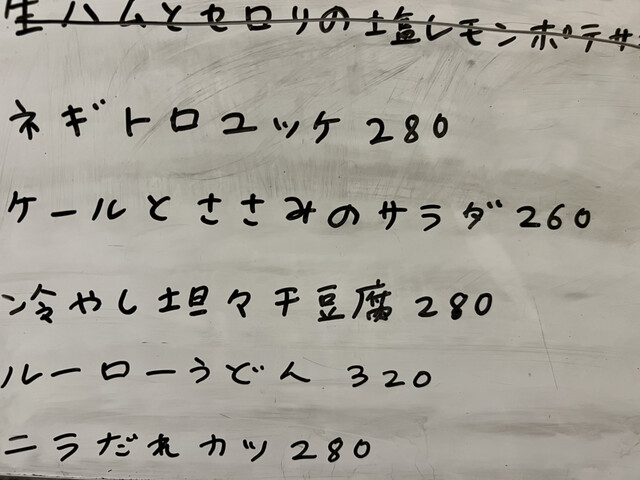 生ハムとセロリの塩レモンポテサ
ネギトロユッケ 280
ケールとささみのサラダ 260
冷やし坦々干豆腐 280
ルーローうどん 320
ニラだれカツ 280